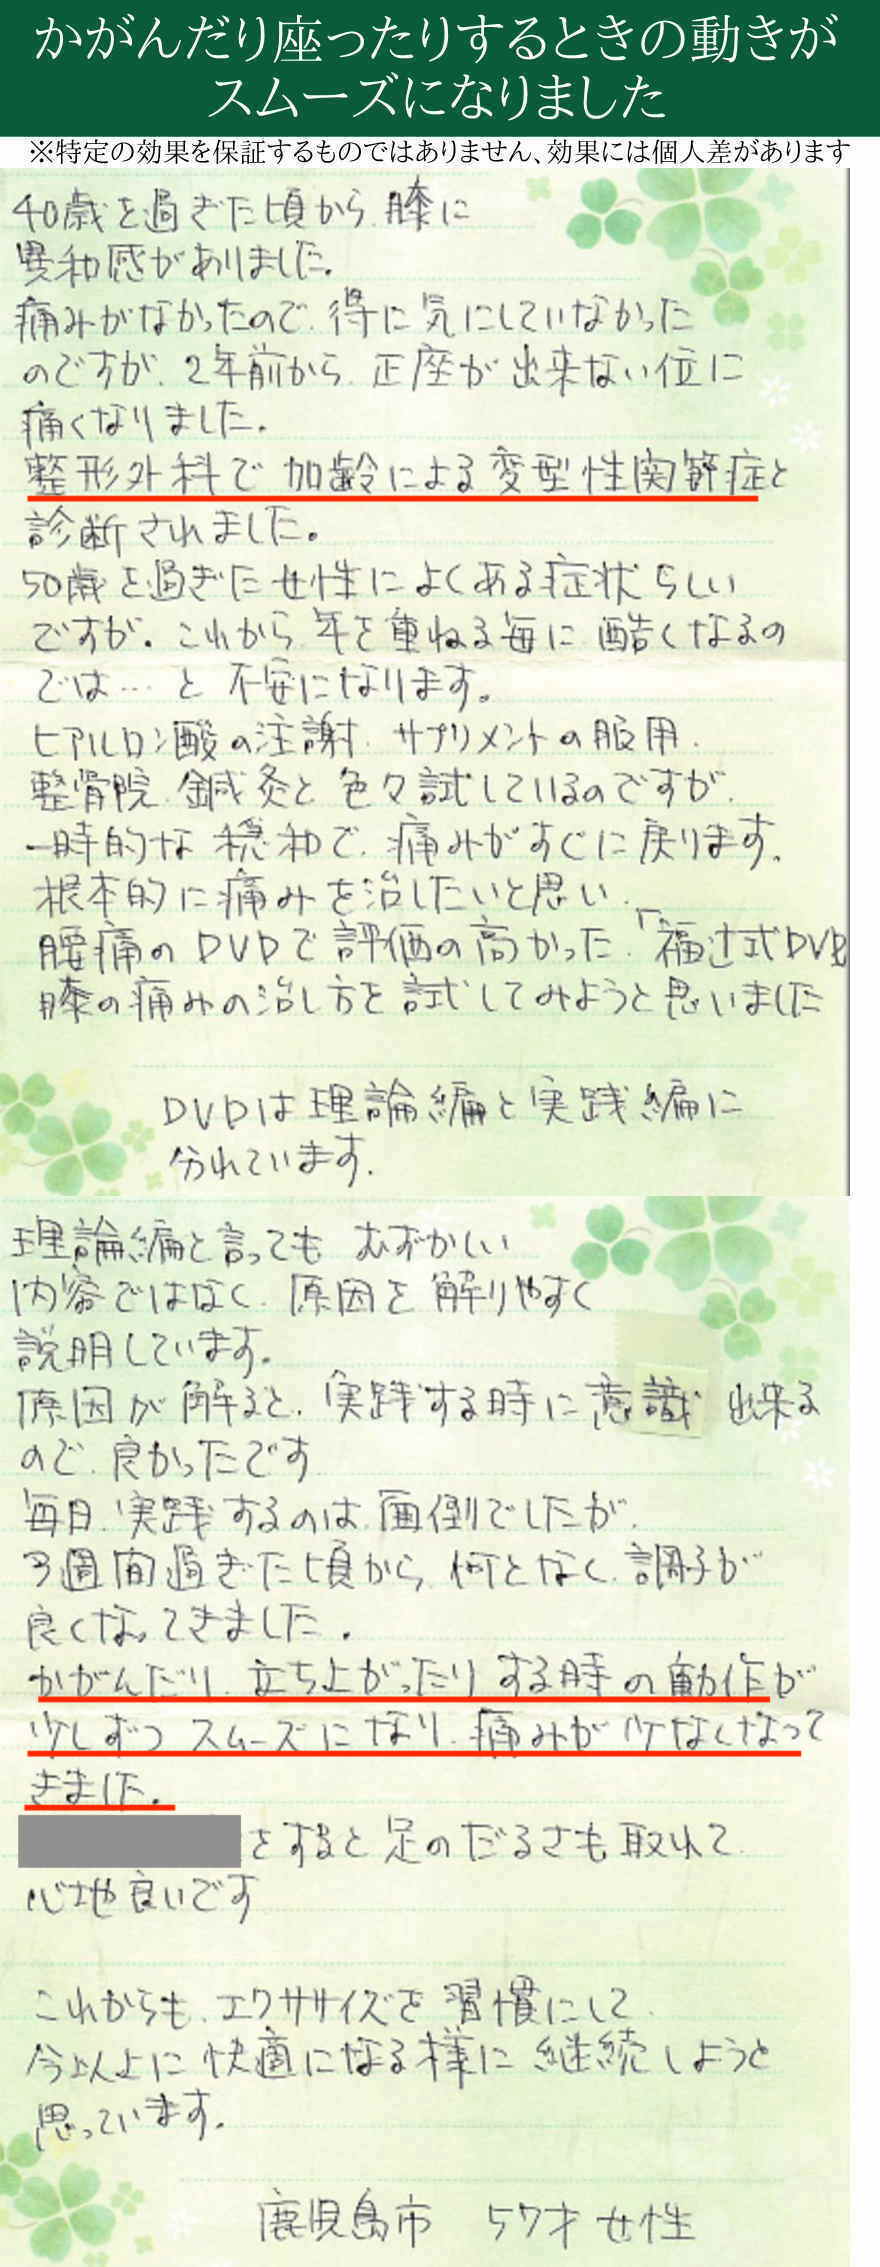 かがんだり座ったりするときの動きが
スムーズになりました
※特定の効果を保証するものではありません、効果には個人差があります
40歳を過ぎた頃から、膝に
異和感がありました。
痛みがなかったので、得に気にしていなかった
のですが、2年前から、正座が出来ない位に
痛くなりました。
整形外科で加齢による変型性関節症と
診断されました。
50歳を過ぎた女性によくある症状らしい
ですが。これから、年を重ねる毎に酷くなるの
では…と不安になります。
ヒアルロン酸の注謝、サプリメントの服用、
整骨院、鍼灸と色々試しているのですが、
一時的な穏和で、痛みがすぐに戻ります。
根本的に痛みを治したいと思い、
腰痛のDVDで評価の高かった、「福辻式DVD
膝の痛みの治し方を試してみようと思いました
DVDは理論編と実践編に
分れています。
理論編と言っても むずかしい
内容ではなく、原因を解りやすく
説明しています。
原因が解ると、実践する時に意識出来る
ので、良かったです
毎日、実践するのは、面倒でしたが、
3週間過ぎた頃から、何となく、調子が
良くなってきました。
かがんだり、立ち上がったりする時の動作が
少しずつ スムーズになり、痛みが少なくなって
きました。
をすると足のだるさも取れて、
心地良いです
これからも、エクササイズを習慣にして、
今以上に快適になる様に継続しようと
思っています。
鹿児島市 57才 女性